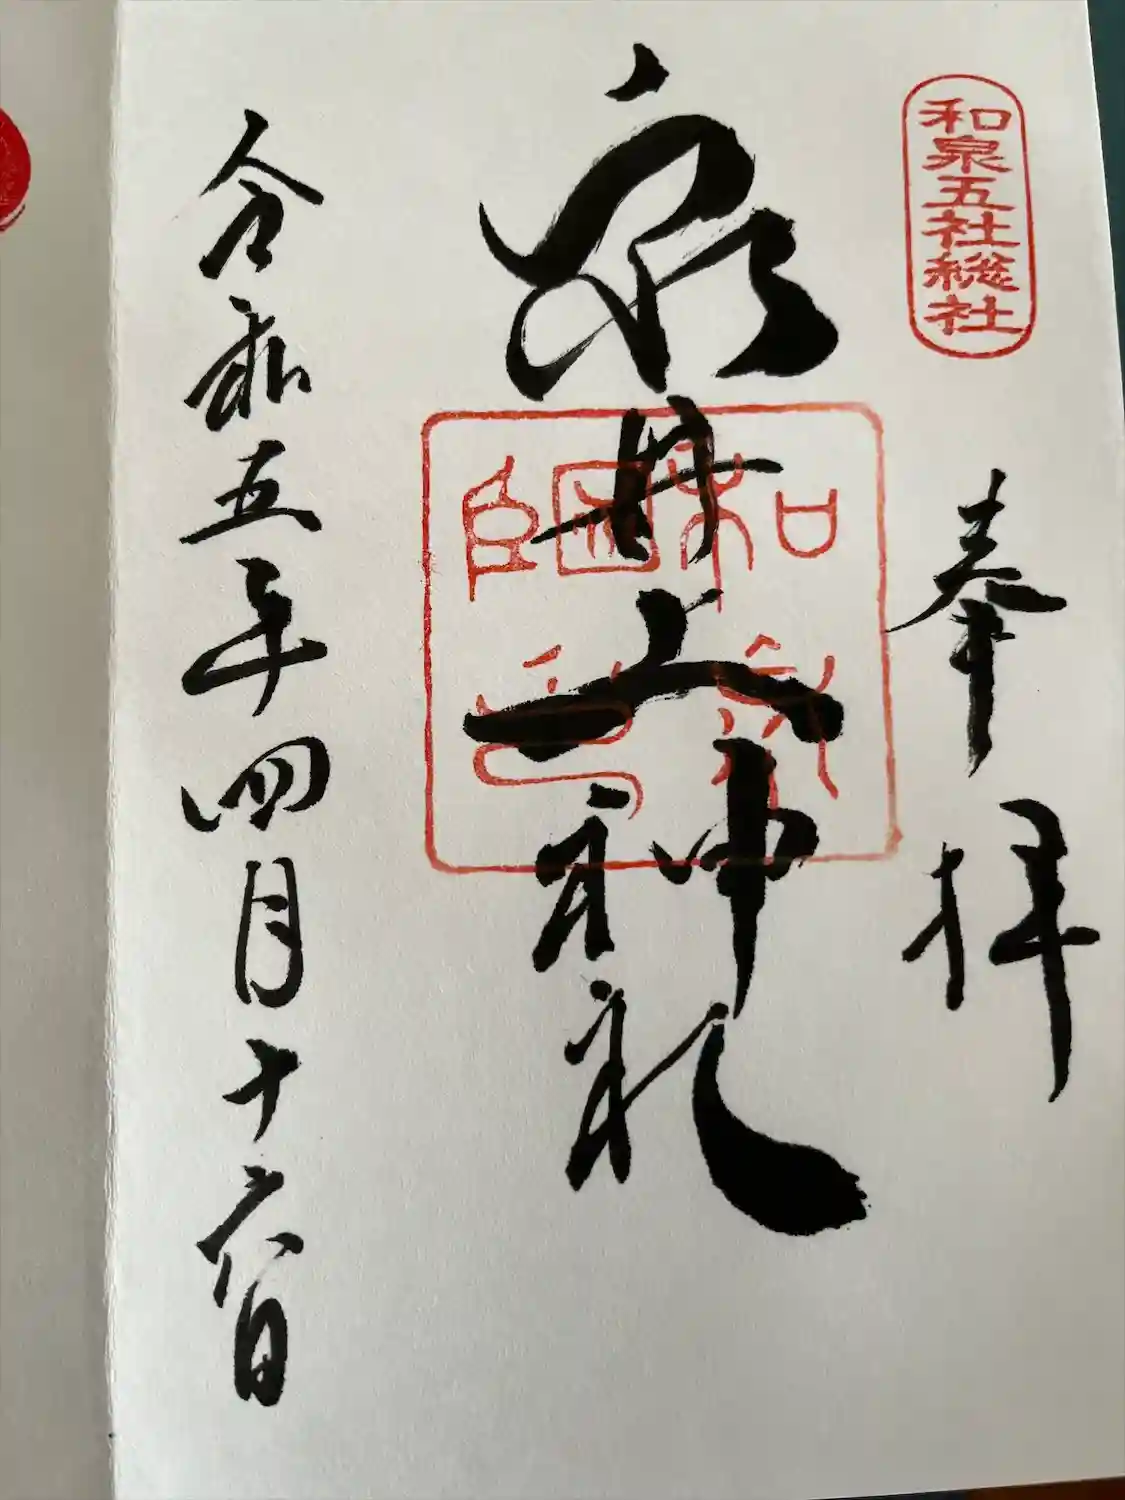 和泉五社総社
奉拝
泉井上神社
和泉國印
令和五年四月十六日